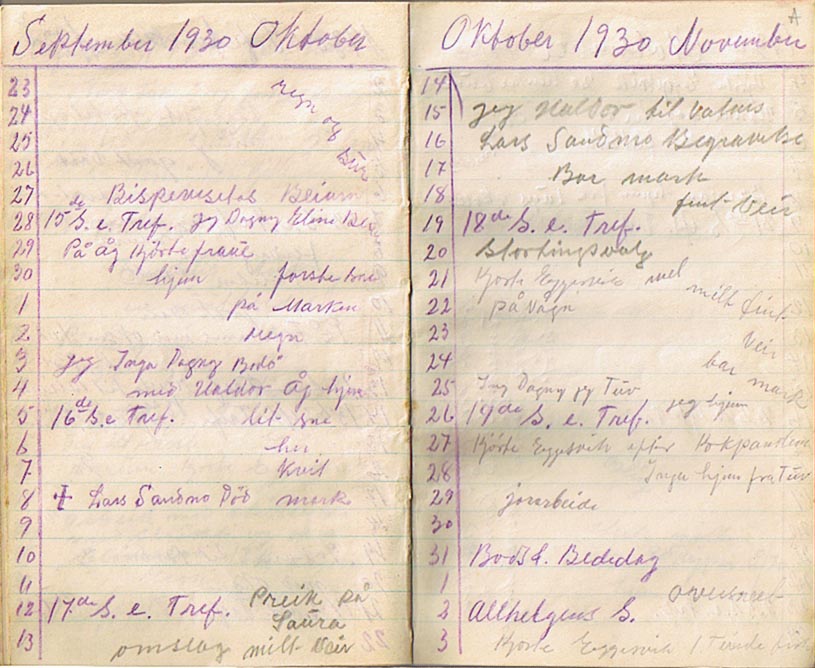 September 1930 Oktober
23 regn og
24
25
26
27 Bispevisitas Beiarn
28 15de S. e. Tref. jeg Dagny Eline
29 På Åg Kjørte
30 hjem første sne
1 på Marken
2 Regn
3 jeg Inga Dagny Bodø
4 med Haldor Åg hjem
5 16de S. e Tref. lit sne
6
7 Kvit
8 ✝ Lars Sandmo Død mark
9
10
11
12 17de S. e. Tref. Preik på
Saura
13 omslag milt Veir
Oktober 1930 November
14
15 jeg Haldor til Vatnes
16 Lars Sandmo Begravelse
17 Bar mark
18 fint Veir
19 18de S. e. Tref.
20 Stortingsvalg
21 Kjørte mel
22 på Vågn milt fint
23 Veir
24 bar mark
25 Dagny jeg Tuv
26 19de S. e. Tref. jeg hjem
27 Kjørte Eggesvik efter
28 Inga hjem fra Tuv
29 jorarbeide
30
31 Bods & Bededag
1
2 Allhelgens S.
3 Kjørte Eggesvik